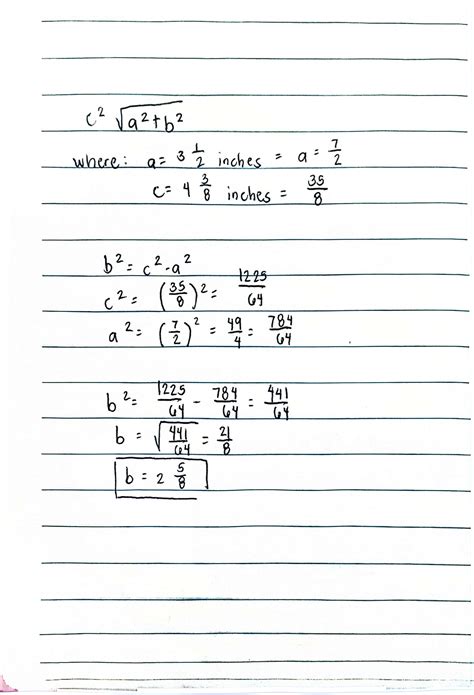 c² √a²+b²
where: a= 3 1/2 inches = a = 7/2
c= 4 3/8 inches = 35/8
b² = c² - a²
c² = (35/8)² = 1225/64
a² = (7/2)² = 49/4 = 784/64
b² = 1225/64 - 784/64 = 441/64
b = √441/64 = 21/8
b = 2 5/8